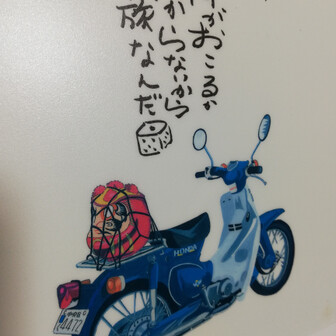 がおこるか
からないから
旅なんだ
HONDA